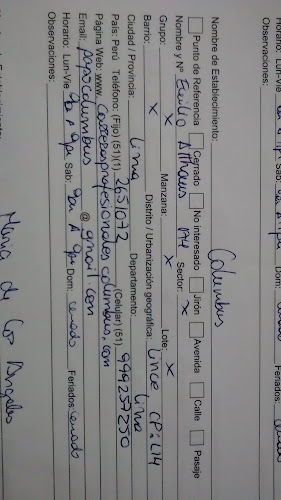 Horario: Lun-Vie
Sab:
Dom:
Feriados:
Observaciones:
Nombre de Establecimiento: Columbus
Punto de Referencia Cerrado No interesado Jirón Avenida Calle Pasaje
Nombre y N° Emilio Althaus 174 Sector: x
Grupo: x Manzana: x Lote: x
Barrio: x Distrito / Urbanización geográfica: Lince CP: L14
Ciudad / Provincia: Lima Departamento: Lima
País: Perú Teléfono: (Fijo) (51)(1) 2651072 (Celular) (51) 999257250
Página Web: www. carrerasprofesionales columbus.com
Email: @ gmail.com
Horario: Lun-Vie 9a A 9p Sab: 9a A 9p Dom: cerrado Feriados: cerrado
Observaciones:
Maria de los Angeles